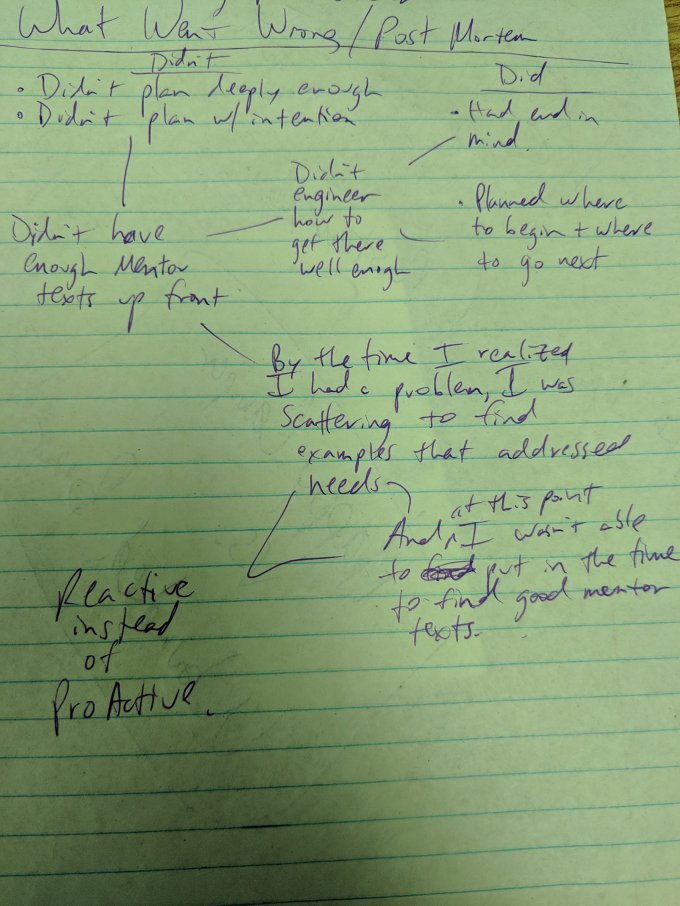 What Went Wrong / Post Mortem
Didn't
• Didn't plan deeply enough
• Didn't plan w/ intention
Did
• Had end in
mind.
• Planned where
to begin + where
to go next
Didn't
engineer
how to
get there
well enogh
Didn't have
enough Mentor
texts up front
By the time I realized
I had a problem, I was
Scattering to find
examples that addressed
needs
at this point
And ^ I wasn't able
to find put in the time
to find good mentor
texts.
Reactive
instead
of
ProActive.